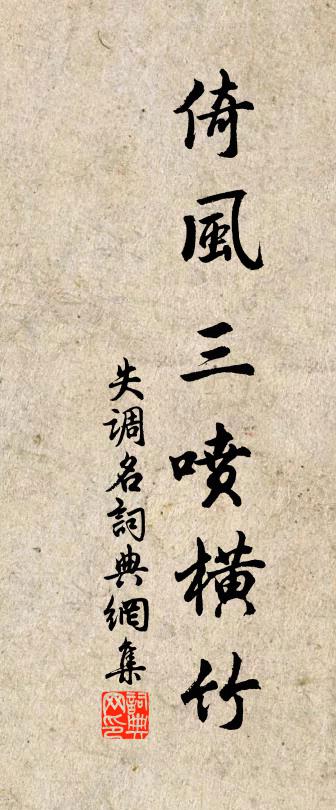 倚風三噴橫竹
失調名詞典網集
詞典網印